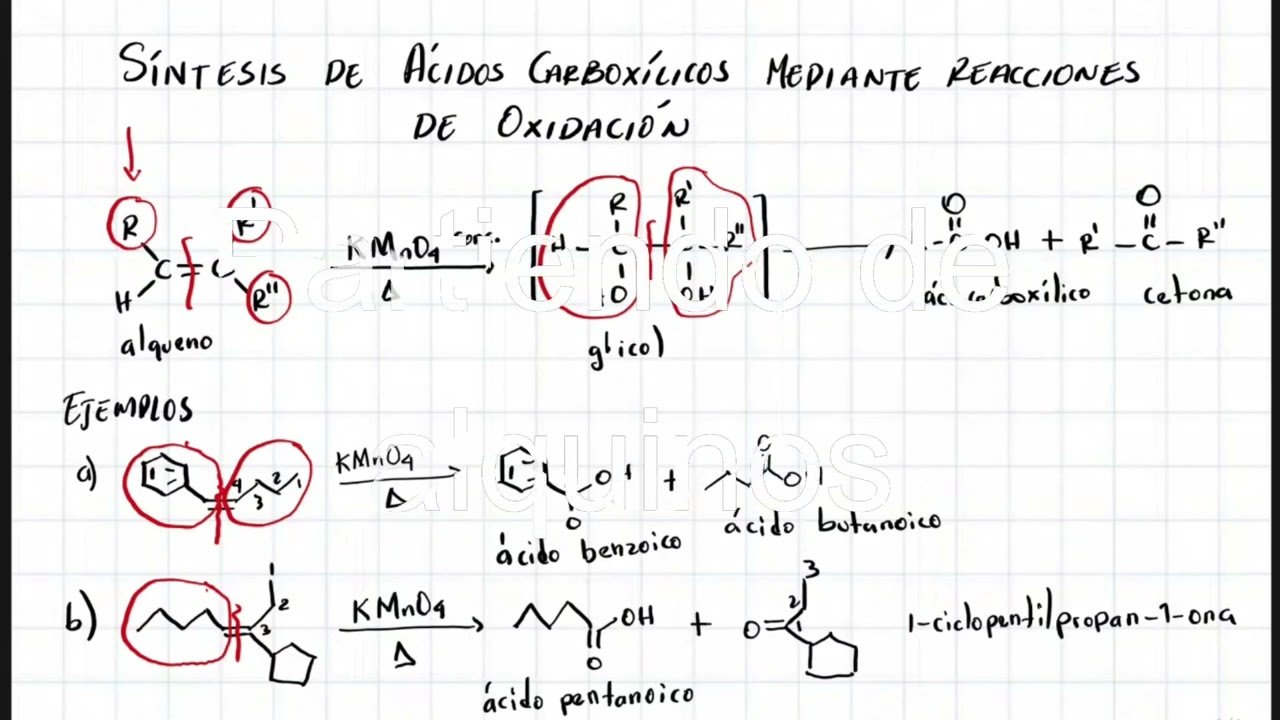 SÍNTESIS DE ÁCIDOS CARBOXÍLICOS MEDIANTE REACCIONES
DE OXIDACIÓN
Partiendo de
alquinos
R R' R"
H C = C
alqueno
KMnO4 conc.
Δ
H - C - C - R"
R R'
OH
glicol
O O
C OH + R' - C - R"
ácido carboxílico cetona
EJEMPLOS
a)
4 3 2 1
KMnO4
Δ
O
+
O
ácido benzoico
ácido butanoico
b)
1
2
3
KMnO4
Δ
OH
O
+
3
2
O 1
1-ciclopentilpropan-1-ona
ácido pentanoico